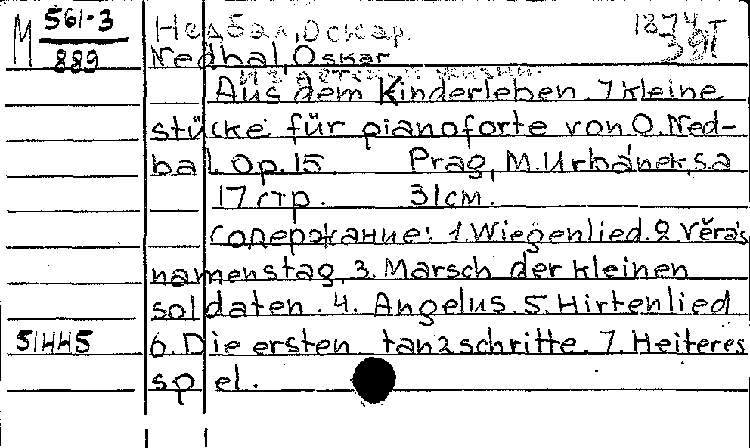 М 561-3
889
Недбал, Оскар. 1874
391
Nedbal, Oskar
Из детской жизни.
Aus dem Kinderleben. 7 kleine
stücke für pianoforte von O. Ned-
bal. Op. 15. Prag, M. Urbánek, s.a.
17 стр. 31 см.
Содержание: 1. Wiegenlied. 2. Věra's
namenstag. 3. Marsch der kleinen
soldaten. 4. Angelus. 5. Hirtenlied
51445
6. Die ersten tanzschritte. 7. Heiteres
spiel.